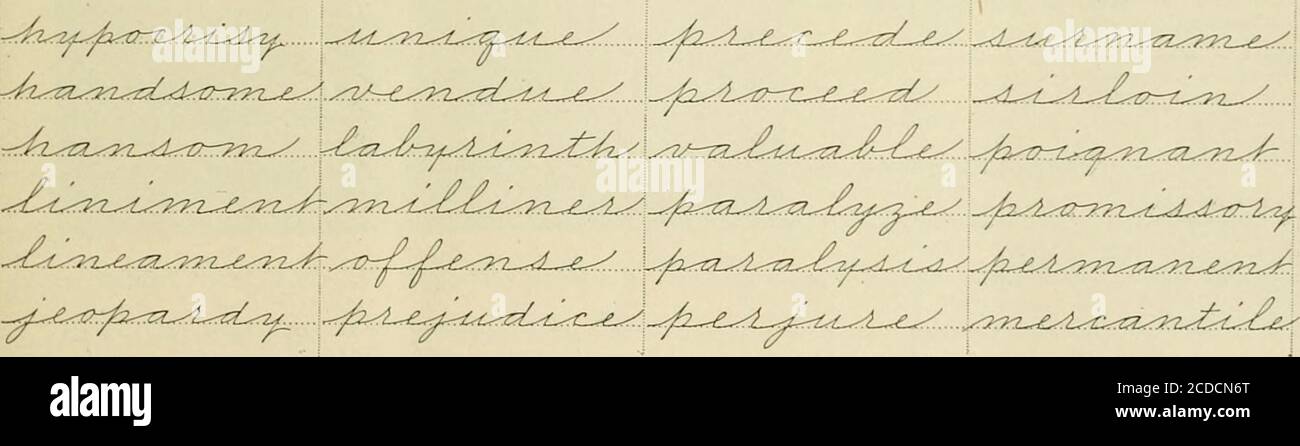 hypocrisy unique precede surname
handsome vendue proceed sirloin
hansom labyrinth valuable poignant
liniment milliner paralyze promissory
lineament offense paralysis permanent
jeopardy prejudice perjure mercantile
a alamy a
alamy
Image ID: 2CDCN6T
www.alamy.com